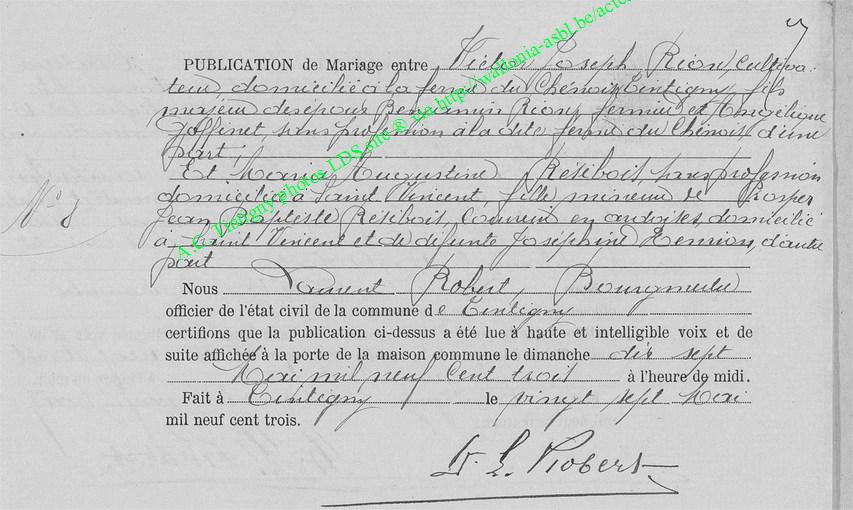 7
PUBLICATION de Mariage entre Victor Joseph Rion, cultiva-
teur, domicilié à la ferme du Chenois Tintigny, fils
majeur des époux Benjamin Rion, fermier et Angélique
Goffinet, sans profession à la dite ferme du Chenois, d'une
part;
Et Maria Augustine Rétiboit, sans profession
domiciliée à Saint Vincent, fille mineure de Prosper
N° 8
Jean Baptiste Rétiboit, couvreur en ardoises, domicilié
à Saint Vincent et de défunte Joséphine Hension, d'autre
part
Nous Laurent Robert, Bourgmestre
officier de l'état civil de la commune de Tintigny
certifions que la publication ci-dessus a été lue à haute et intelligible voix et de
suite affichée à la porte de la maison commune le dimanche dix sept
Mai mil neuf cent trois à l'heure de midi.
Fait à Tintigny le vingt sept Mai
mil neuf cent trois.
L. Robert
A.G. Tintigny photos LDS site ® via http://wallonia-asbl.be/acte